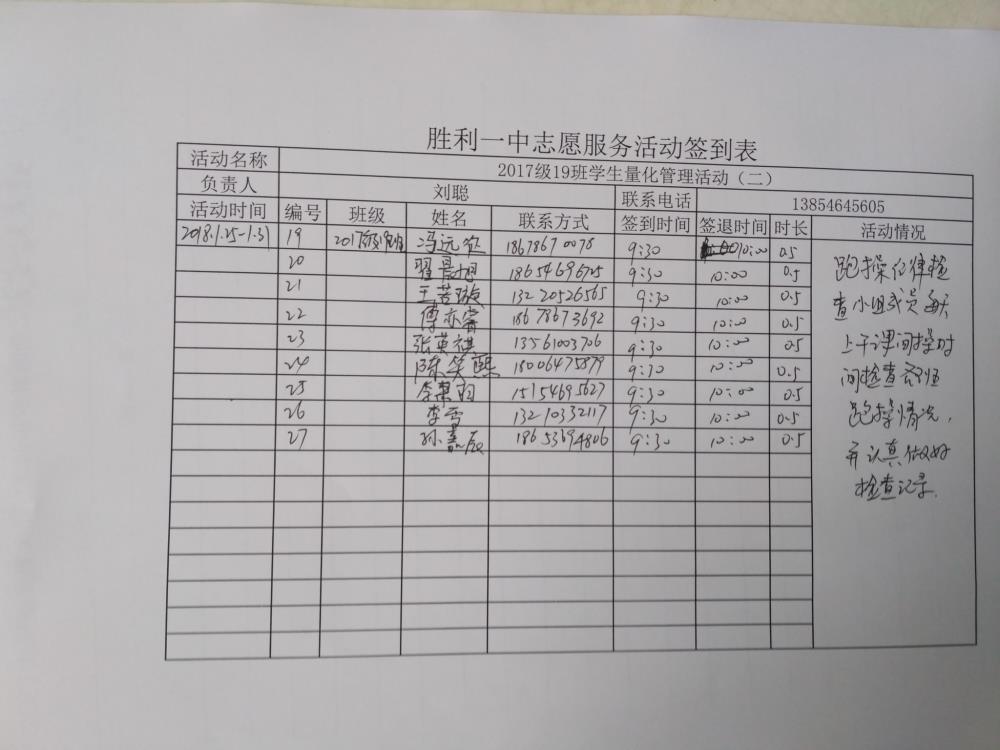 胜利一中志愿服务活动签到表
活动名称 2017级19班学生量化管理活动（二）
负责人 刘聪 联系电话 13854645605
活动时间 编号 班级 姓名 联系方式 签到时间 签退时间 时长 活动情况
2018.1.25-1.31 19 2017级19班 冯远征 18678670078 9:30 10:00 0.5
20 翟晨旭 18654696725 9:30 10:00 0.5
21 王菩璇 13220526565 9:30 10:00 0.5
22 傅亦睿 18678673692 9:30 10:00 0.5
23 张英祺 13561003706 9:30 10:00 0.5
24 陈笑熙 18006475879 9:30 10:00 0.5
25 15154695627 9:30 10:00 0.5
26 李雪 13210332117 9:30 10:00 0.5
27 孙嘉辰 18653694806 9:30 10:00 0.5
跑操纪律检
查小组成员每天
上午课间操时
间检查各班
跑操情况，
并认真做好
检查记录.